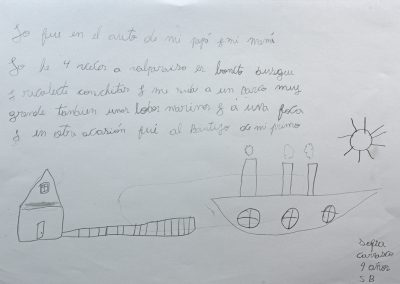 Yo fui en el auto de mi papá y mi mamá.
Yo he 4 veces a valparaiso es bonito busque
y recolecte conchitas y me subi a un barco muy
grande tambien unos lobos marinos y a una foca
y en otra ocasión fui al Bautizo de mi primo
Sofia
Carrasco
9 años
5 B